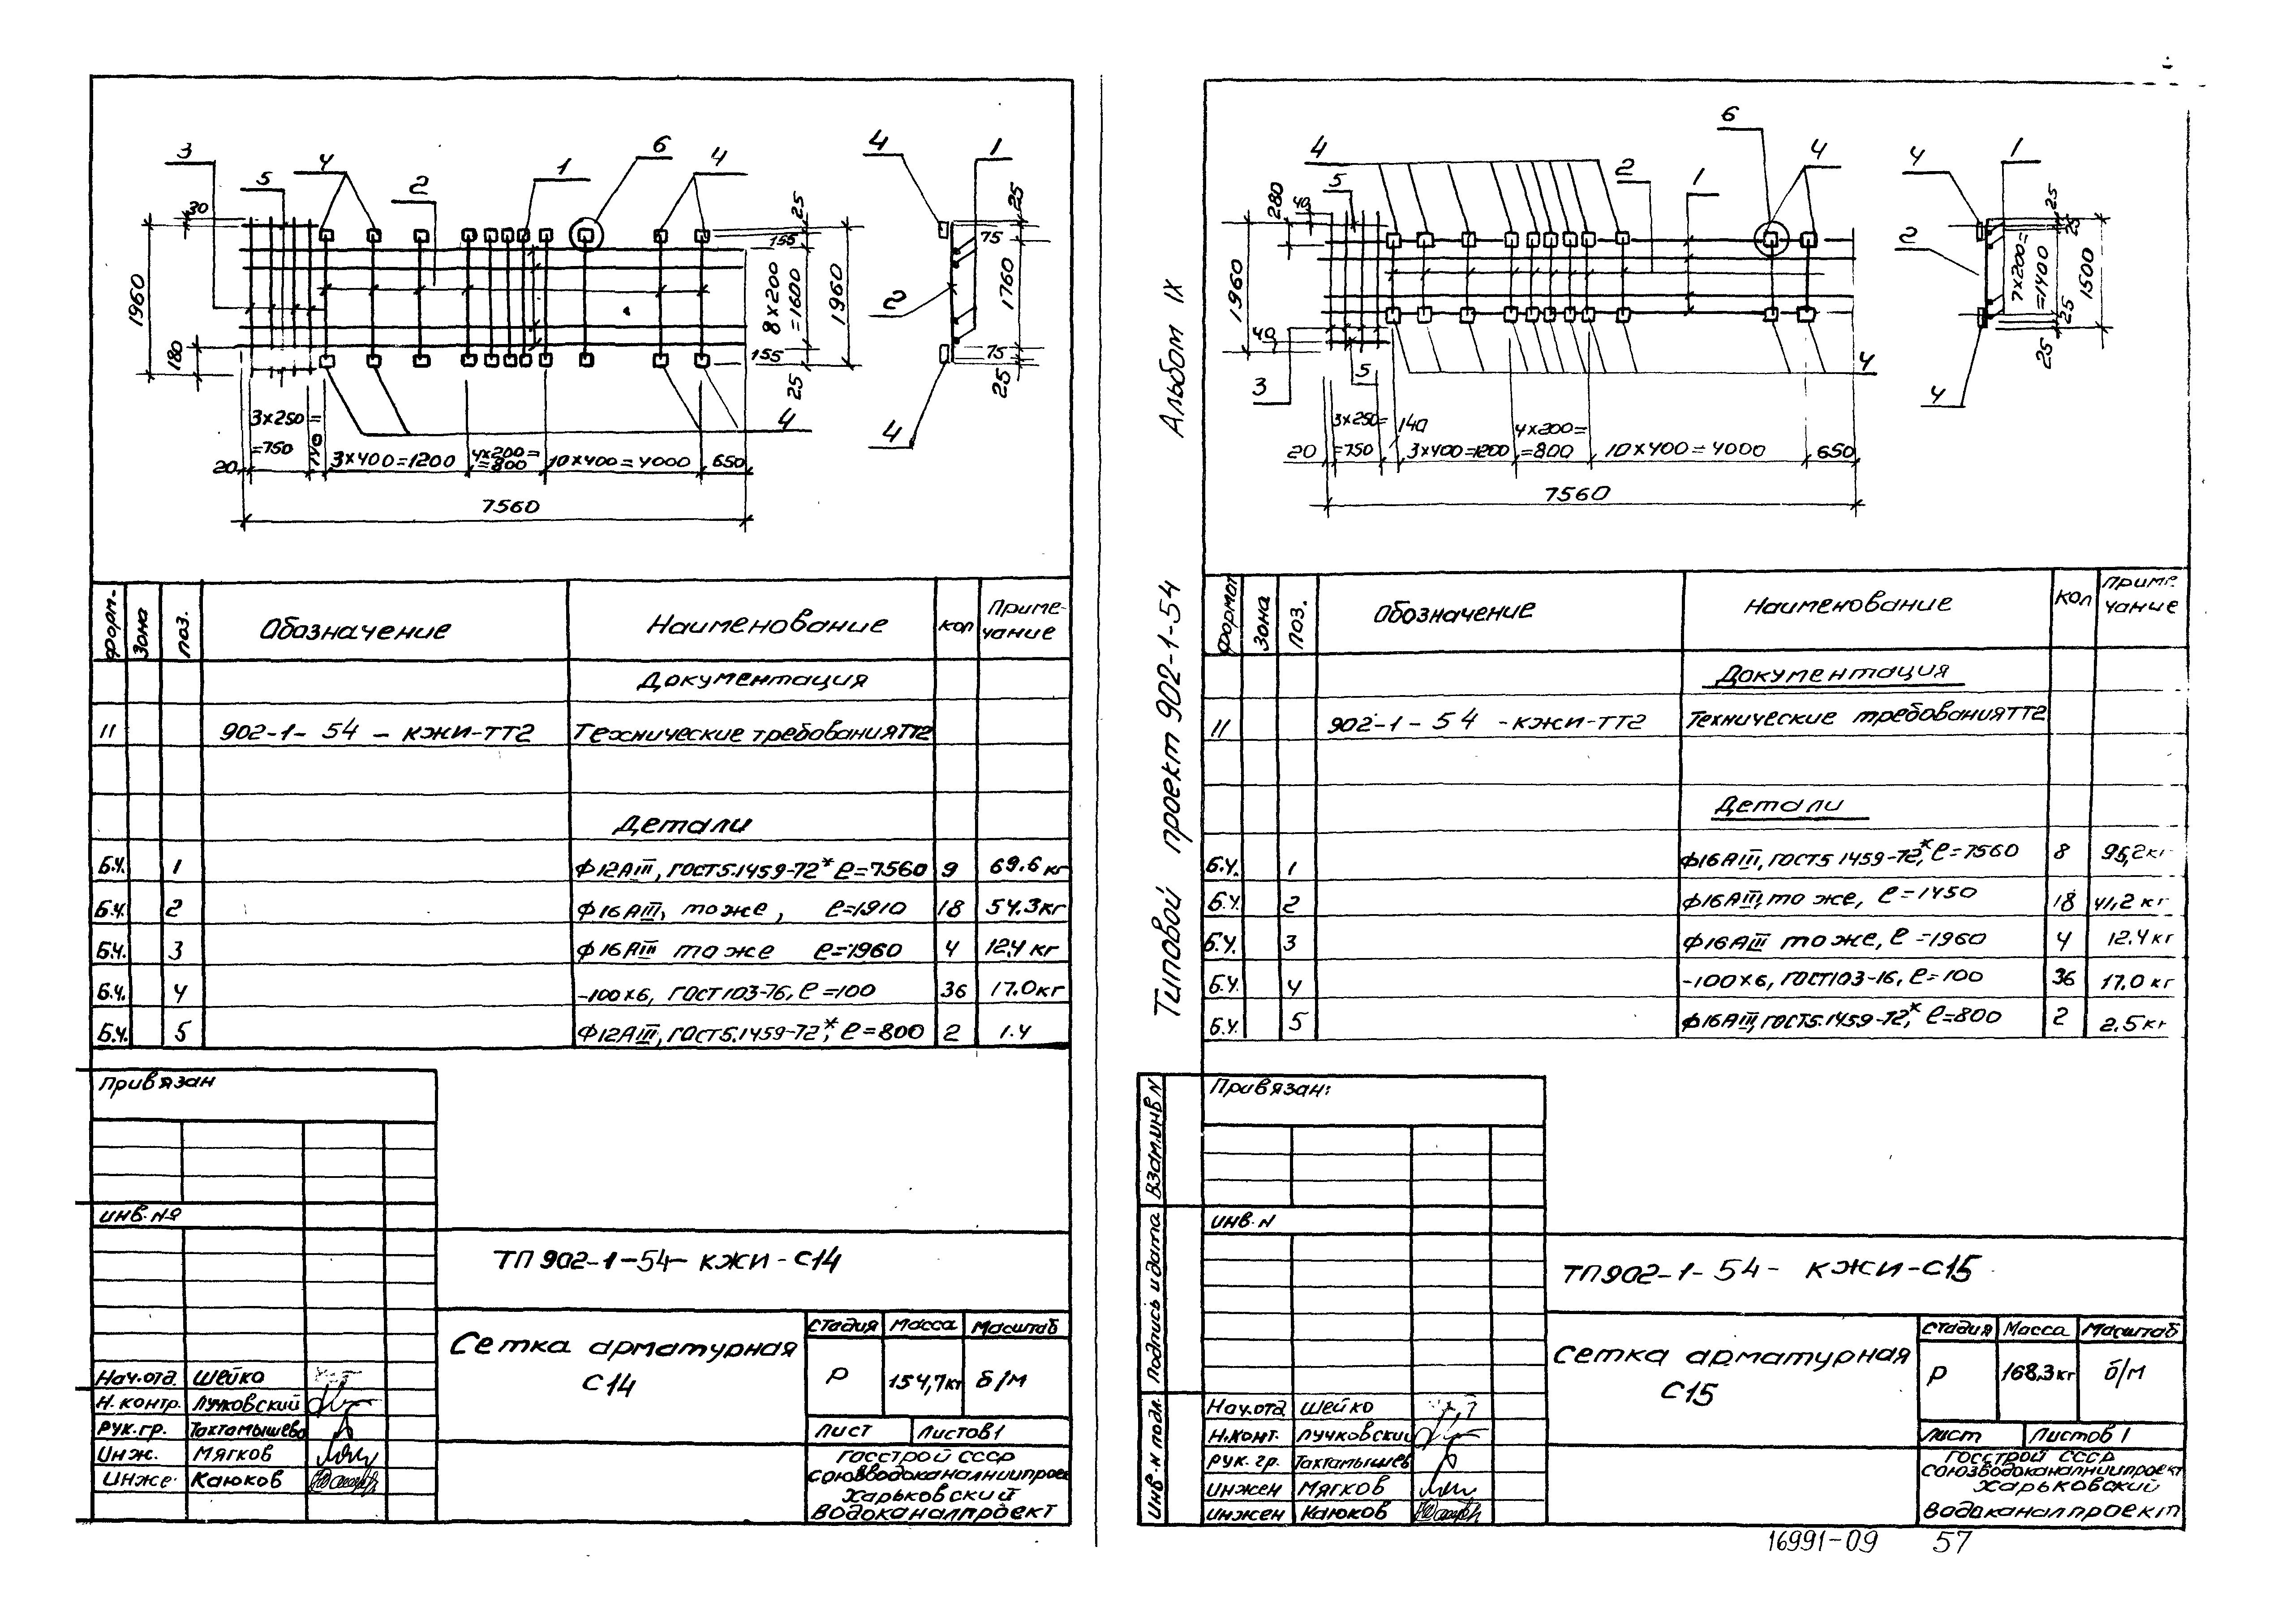 3
5
4
2
1
6
4
4
1
30
1960
180
155
8×200
=1600
155
25
25
1960
2
75
1760
75
25
25
4
4
3×250=
=750
140
20
3×400=1200
4×200=
=800
10×400=4000
650
7560
форм.
Зона
поз.
Обозначение
Наименование
кол
Приме-
чание
Документация
11
902-1-54-КЖИ-ТТ2
Технические требования ТТ2
Детали
Б.Ч. 1 ф12АIII, ГОСТ5.1459-72* ℓ=7560 9 69.6 кг
Б.Ч. 2 ф16АIII, то же, ℓ=1910 18 54.3кг
Б.Ч. 3 ф16АIII то же ℓ=1960 4 12.4 кг
Б.Ч. 4 -100×6, ГОСТ103-76, ℓ=100 36 17.0кг
Б.Ч. 5 ф12АIII, ГОСТ5.1459-72*, ℓ=800 2 1.4
Привязан
инв.№
ТП 902-1-54-КЖИ-С14
Сетка арматурная
С14
Стадия Масса Масштаб
Р 154,7кг б/м
Лист Листов1
Госстрой СССР
союзводоканалниипроек
Харьковский
Водоканалпроект
Нач.отд. Шейко
Н.контр. Лучковский
Рук.гр. Тахтамышева
Инж. Мягков
Инже. Каюков
Типовой проект 902-1-54 Альбом IX
4
5
2
1
6
4
4
1
280
40
1960
40
3
5
4
2
4
25
25
7×200=
=1400
1500
25
25
20
3×250=
=750
140
3×400=1200
4×200=
=800
10×400=4000
650
7560
формат
Зона
поз.
Обозначение
Наименование
кол
Приме-
чание
Документация
11
902-1-54-КЖИ-ТТ2
Технические требования ТТ2
Детали
Б.Ч. 1 ф16АIII, ГОСТ5.1459-72*, ℓ=7560 8 95,2кг
Б.Ч. 2 ф16АIII, то же, ℓ=1450 18 41,2 кг
Б.Ч. 3 ф16АIII то же, ℓ=1960 4 12.4 кг
Б.Ч. 4 -100×6, ГОСТ103-16, ℓ=100 36 17,0 кг
Б.Ч. 5 ф16АIII, ГОСТ5.1459-72*, ℓ=800 2 2.5 кг
Привязан:
инв.N
Взам.инв N
Подпись и дата
Инв.N подл.
ТП902-1-54-КЖИ-С15
Сетка арматурная
С15
Стадия Масса Масштаб
Р 168,3кг б/м
Лист Листов 1
Госстрой СССР
Союзводоканалниипроект
Харьковский
Водоканалпроект
Нач.отд Шейко
Н.конт. Лучковский
Рук.гр. Тахтамышев
Инжен Мягков
Инжен Каюков
16991-09 57